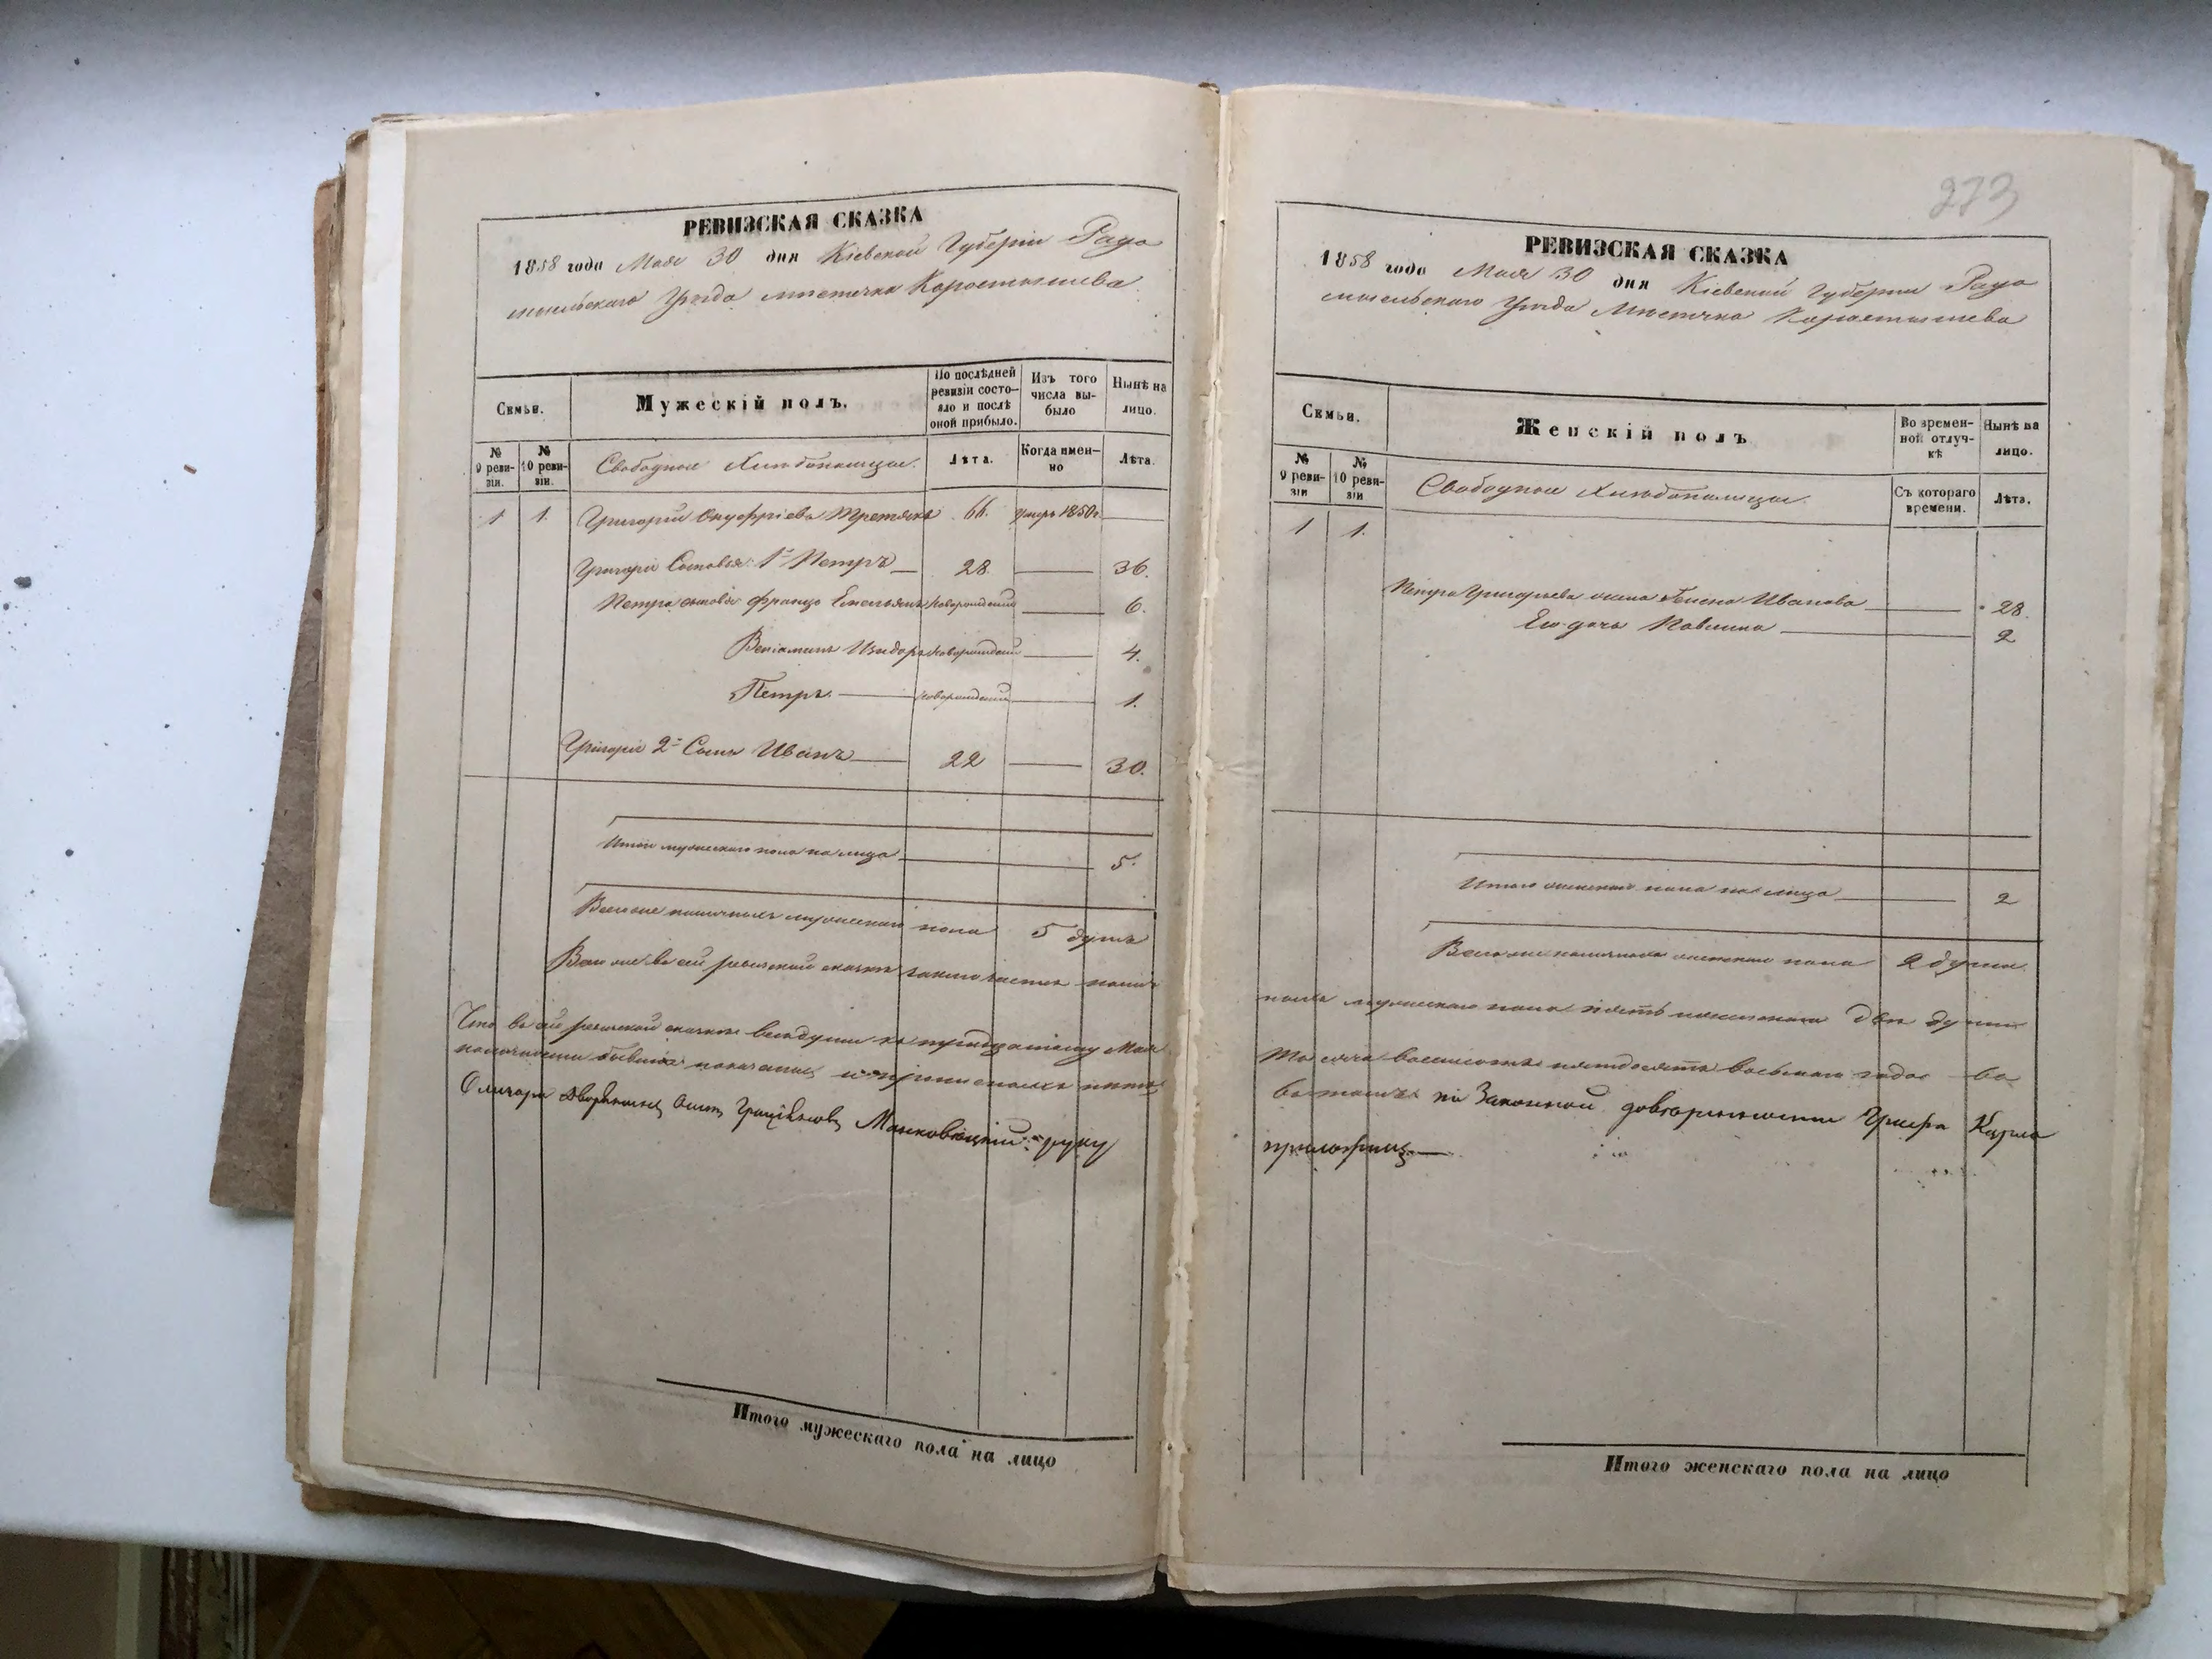 РЕВИЗСКАЯ СКАЗКА
1858 года Мая 30 дня Кіевской Губерніи Радо
мысльскаго Уѣзда мѣстечка Коростышева
Семьи.
Мужескій полъ.
По послѣдней ревизіи состо-
яло и послѣ
оной прибыло.
Изъ того
числа вы-
было
Нынѣ на
лицо.
№
9 реви-
зіи.
№
10 реви-
зіи.
Свободные Хлѣбопашцы.
Лѣта.
Когда имен-
но
Лѣта.
1 1. Григорій Онуфріевъ Третякъ 66. умеръ 1850г.
Григорія Сыновья: 1й Петръ 28. 36.
Петра сыновья Францъ Емельянъ новорожденный 6.
Веніаминъ Изидоръ новорожденный 4.
Петръ новорожденный 1.
Григорія 2й Сынъ Иванъ 22 30.
Итого мужескаго пола на лицо 5.
Всего же наличныхъ мужескаго пола 5 душъ
Всего же въ сей ревизской сказкѣ заключается налич
Что въ сей ревизской сказкѣ всѣ души къ тридцатому Мая
наличности бывшіе показаны и прописныхъ нѣтъ
Мановицкій руку
Итого мужескаго пола на лицо
273
РЕВИЗСКАЯ СКАЗКА
1858 года Мая 30 дня Кіевской Губерніи Радо
мысльскаго Уѣзда Мѣстечка Коростышева
Семьи.
Женскій полъ
Во времен-
ной отлуч-
кѣ
Нынѣ на
лицо.
№
9 реви-
зіи
№
10 реви-
зіи
Свободные Хлѣбопашцы.
Съ котораго
времени.
Лѣта.
1 1.
Петра Григорьева жена Ивановна 28
Его дочь Павлина 2
Итого женскаго пола на лицо 2
Всего же наличныхъ женскаго пола 2 души.
ныхъ мужескаго пола пять и женскаго двѣ души
тысяча восемьсотъ пятьдесятъ восьмаго года во
по Законной довѣренности Графа Карла
приложилъ
Итого женскаго пола на лицо